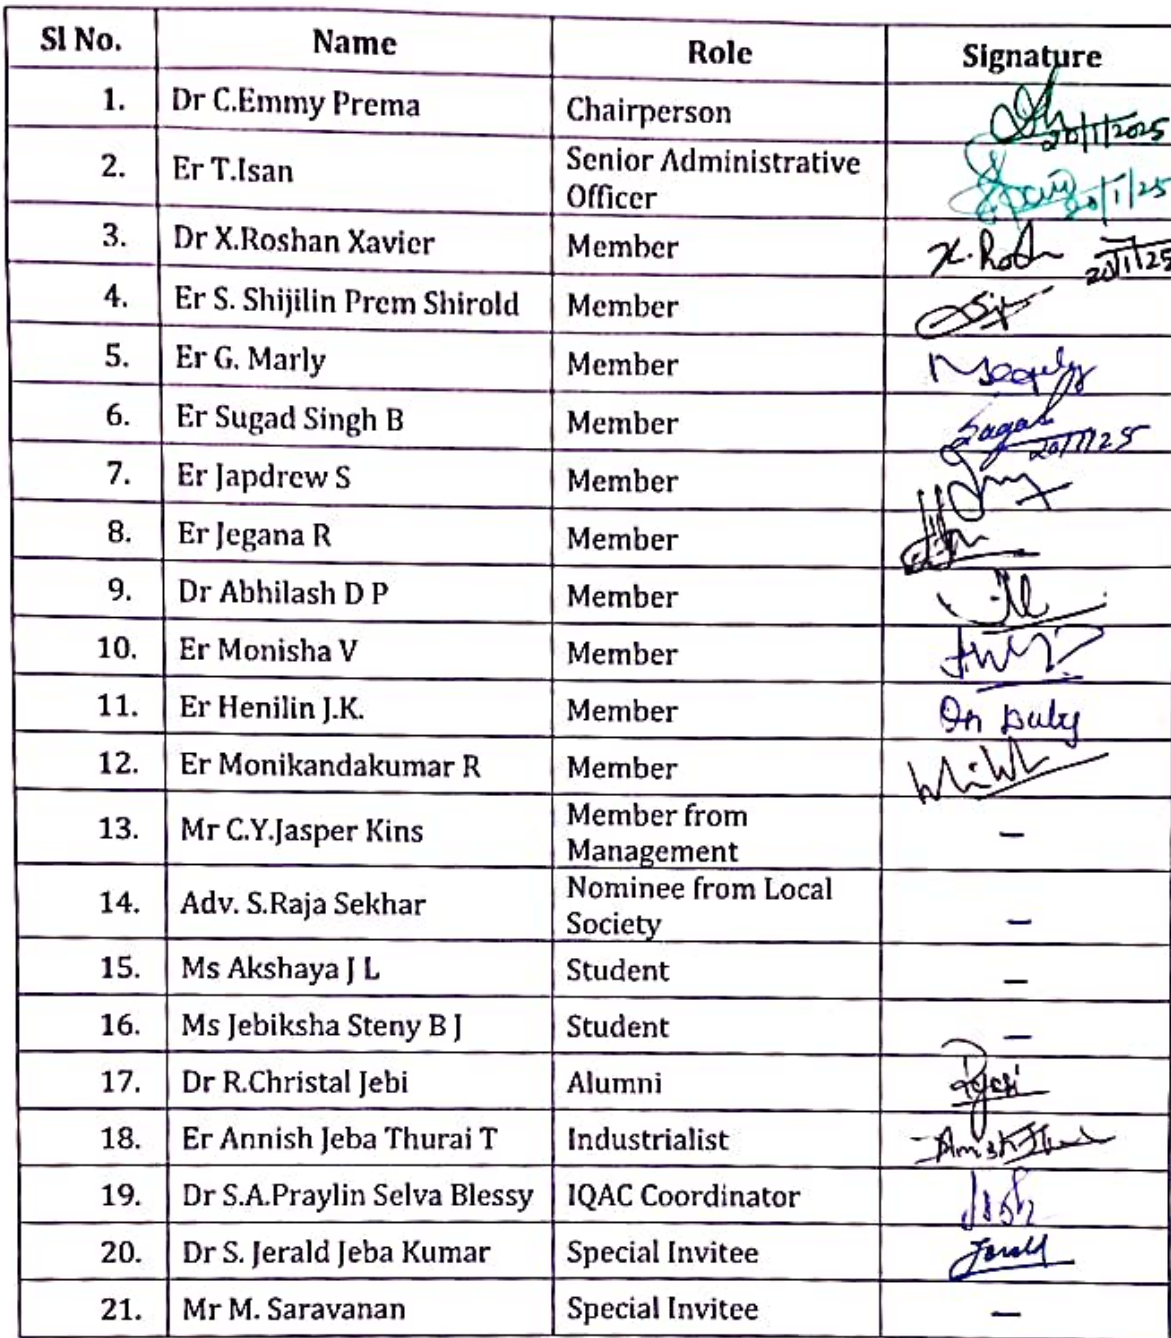 Sl No. Name Role Signature
1. Dr C.Emmy Prema Chairperson
20/1/2025
2. Er T.Isan Senior Administrative
Officer 20/1/25
3. Dr X.Roshan Xavier Member X. Rosh 20/1/25
4. Er S. Shijilin Prem Shirold Member
5. Er G. Marly Member
6. Er Sugad Singh B Member
20/1/25
7. Er Japdrew S Member
8. Er Jegana R Member
9. Dr Abhilash D P Member
10. Er Monisha V Member
11. Er Henilin J.K. Member On Duty
12. Er Monikandakumar R Member
13. Mr C.Y.Jasper Kins Member from
Management –
14. Adv. S.Raja Sekhar Nominee from Local
Society –
15. Ms Akshaya J L Student –
16. Ms Jebiksha Steny B J Student –
17. Dr R.Christal Jebi Alumni
18. Er Annish Jeba Thurai T Industrialist
19. Dr S.A.Praylin Selva Blessy IQAC Coordinator
20. Dr S. Jerald Jeba Kumar Special Invitee Jerald
21. Mr M. Saravanan Special Invitee –